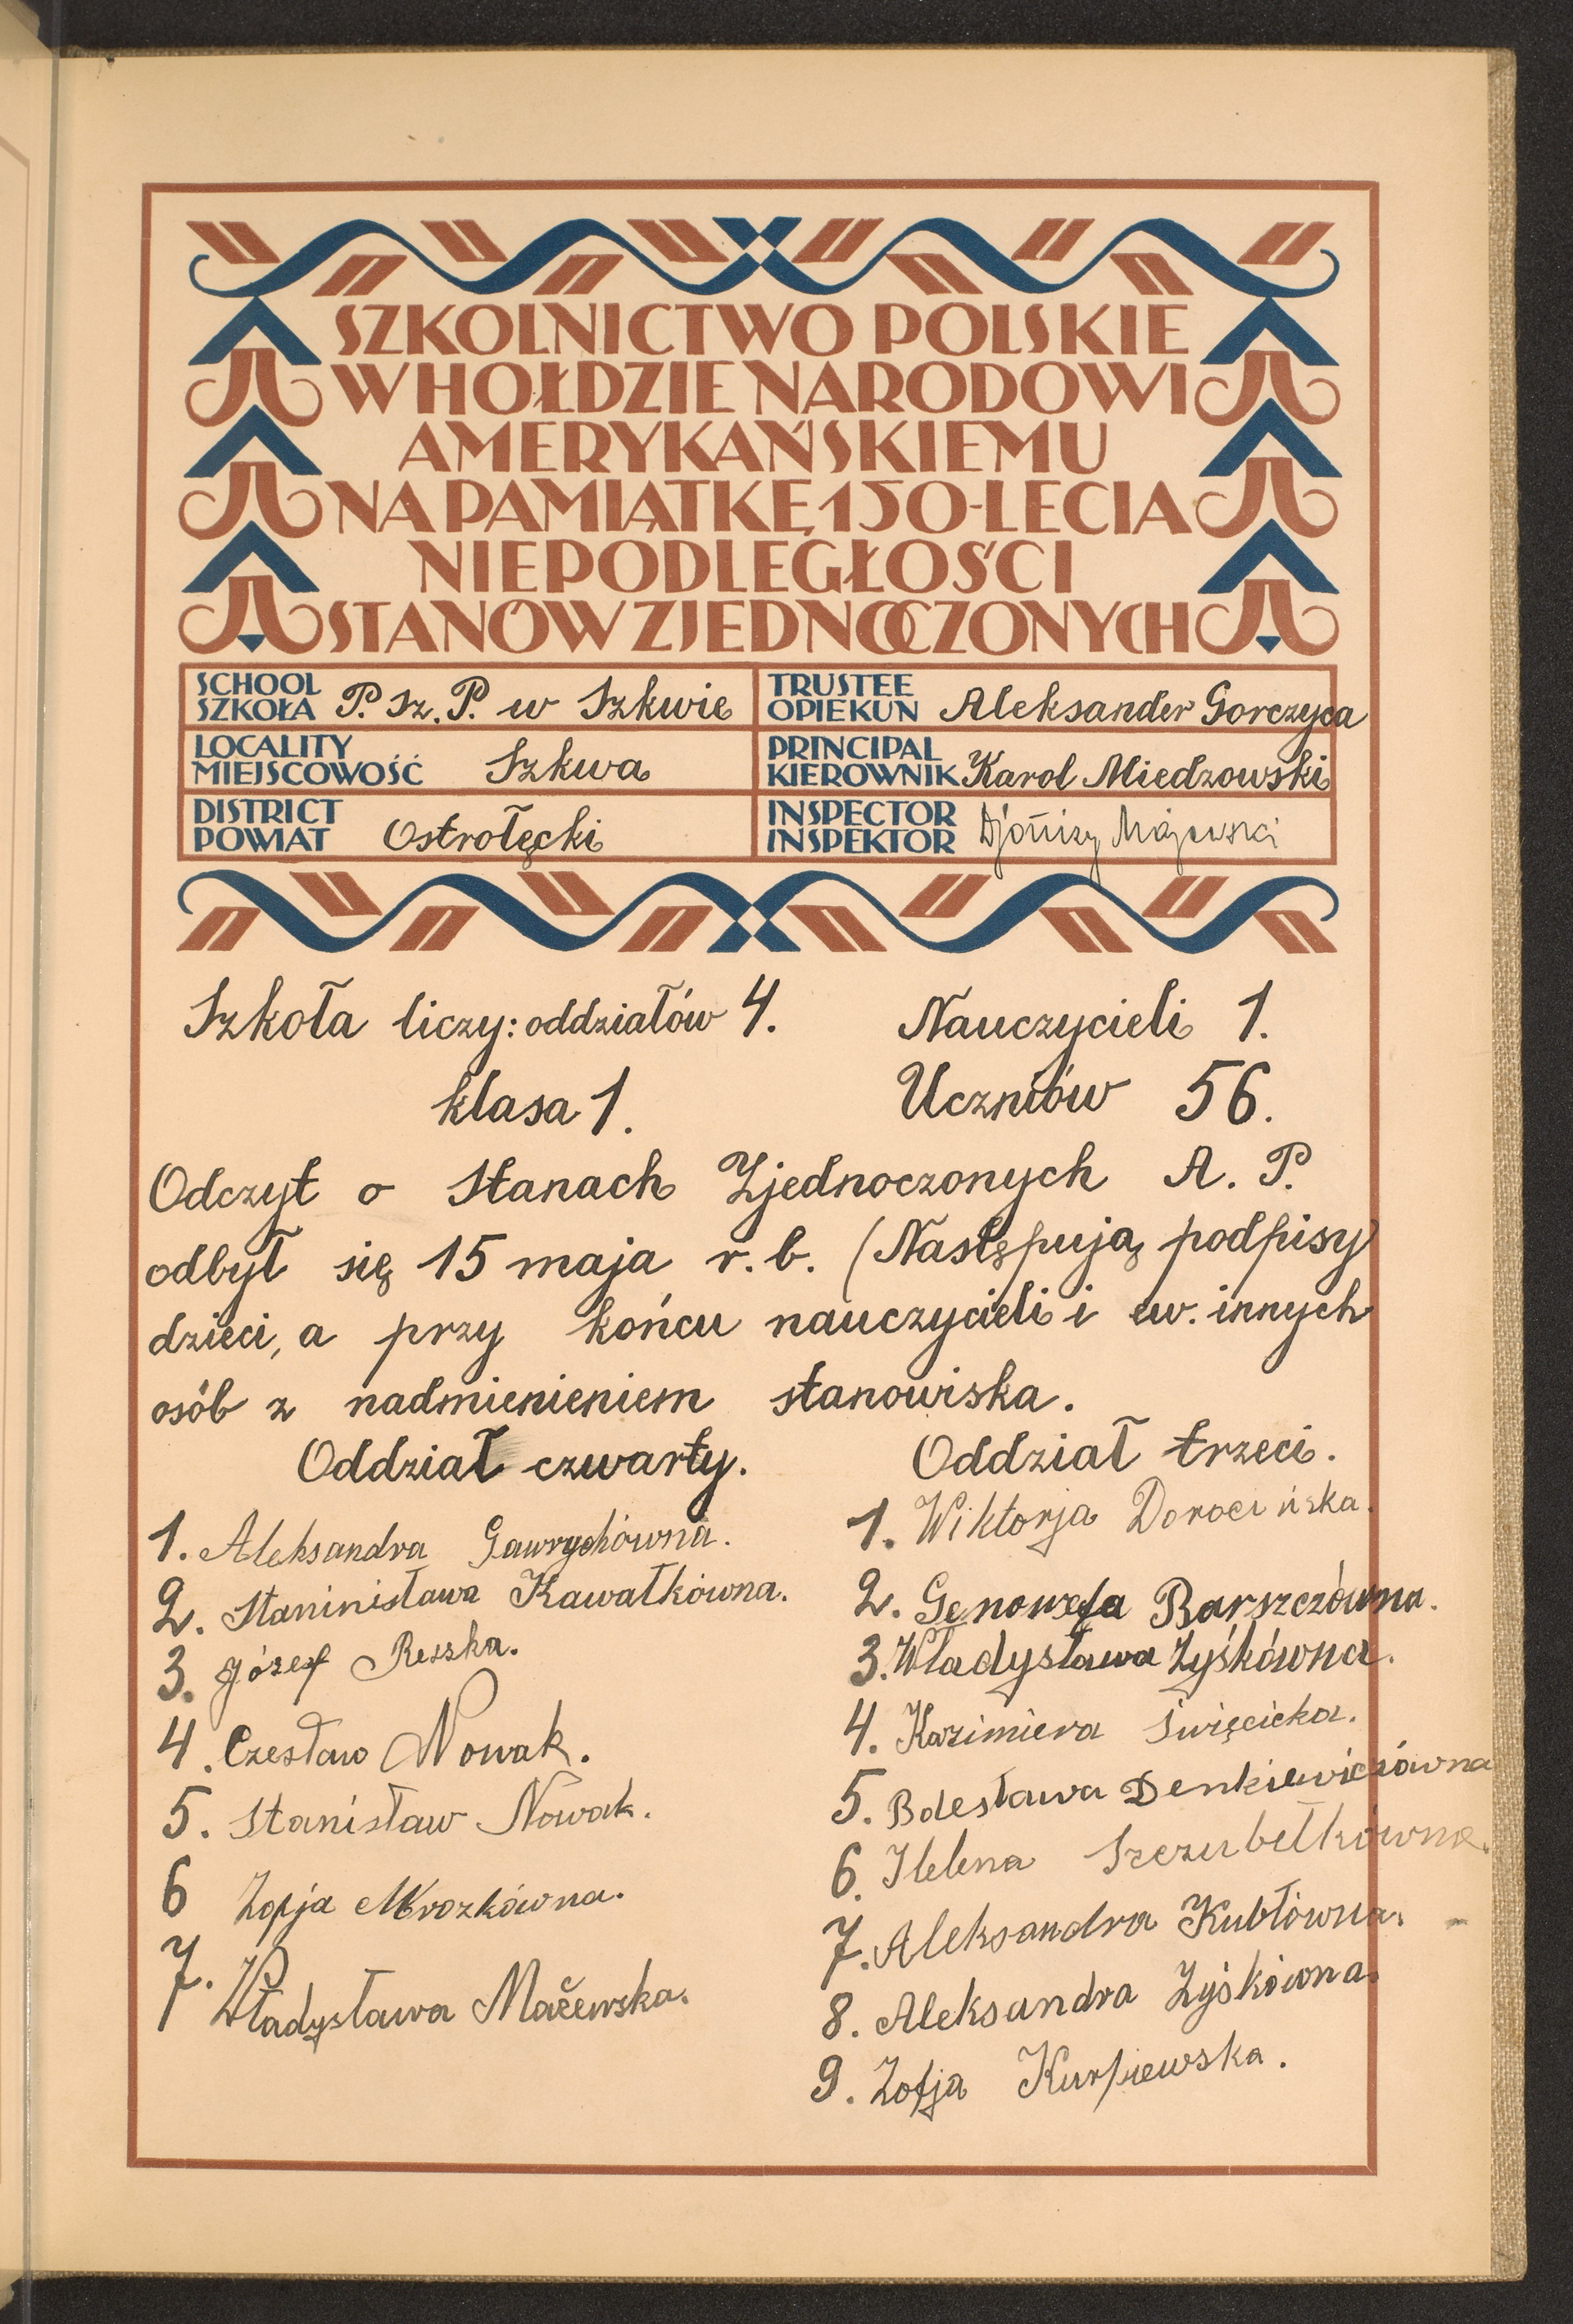 SZKOLNICTWO POLSKIE
W HOŁDZIE NARODOWI
AMERYKAŃSKIEMU
NA PAMIĄTKĘ 150-LECIA
NIEPODLEGŁOŚCI
STANÓW ZJEDNOCZONYCH
SCHOOL
SZKOŁA P. Sz. P. w Szkwie
TRUSTEE
OPIEKUN Aleksander Gorczyca
LOCALITY
MIEJSCOWOŚĆ Szkwa
PRINCIPAL
KIEROWNIK Karol Miedzowski
DISTRICT
POWIAT Ostrołęcki
INSPECTOR
INSPEKTOR Djonizy Majewski
Szkoła liczy: oddziałów 4. Nauczycieli 1.
klasa 1. Uczniów 56.
Odczyt o Stanach Zjednoczonych A. P.
odbył się 15 maja r. b. (Następują podpisy
dzieci, a przy końcu nauczycieli i ew. innych
osób z nadmienieniem stanowiska.
Oddział czwarty.
1. Aleksandra Gawrychówna.
2. Staninisława Kawałkówna.
3. Józef Resska.
4. Czesław Nowak.
5. Stanisław Nowak.
6 Zofja Mrozkówna.
7. Władysława Mačewska.
Oddział trzeci.
1. Wiktorja Dorocińska.
2. Genowefa Barszczówna.
3. Władysława Zyśkówna.
4. Kazimiera Święcicka.
5. Bolesława Denkiewiczówna
6. Helena Szczubełkówna.
7. Aleksandra Kubłówna.
8. Aleksandra Zyśkówna.
9. Zofja Kurpiewska.